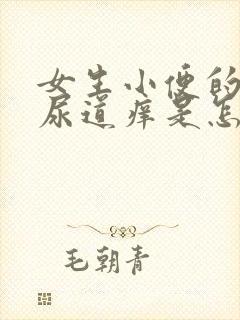 女生小便的
尿道痒是怎
毛朝青